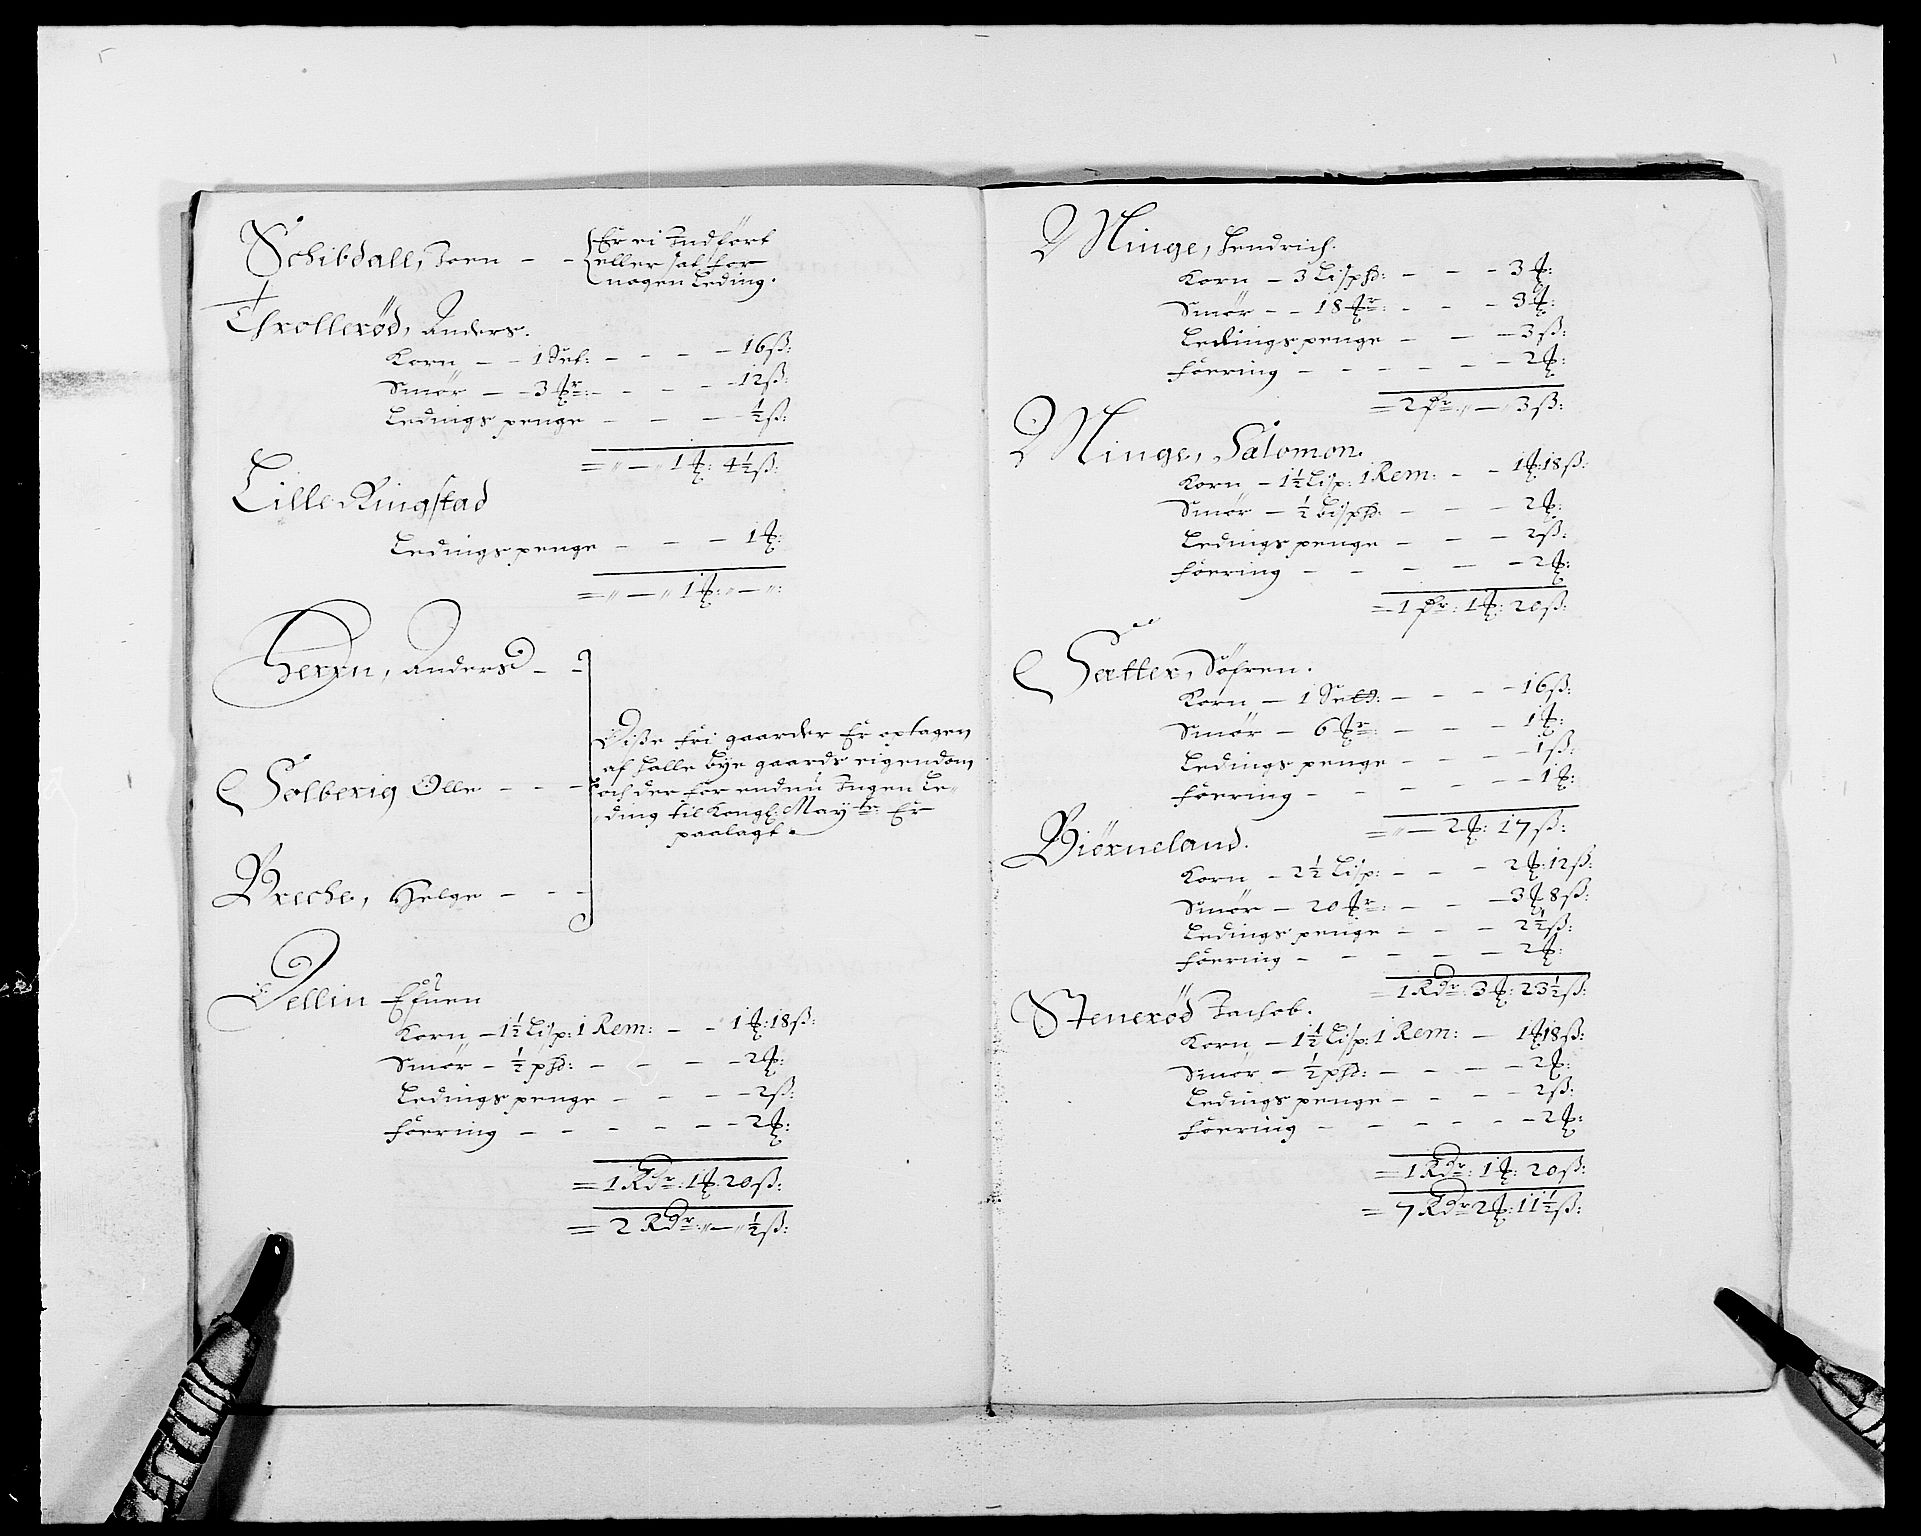 Schibdall, Joen - - Er ei Indført
eller sat for
nogen Leding.
Throllerød, Anders.
Korn - - 1 Set: - - - - 16 ß:
Smør - - 3 - - - - 12 ß:
Ledings penge - - - - ½ ß:
= " - " 1 : 4½ ß:
Lille Ringstad
Ledings penge - - - 1 :
= " - " 1 : " - ":
Herrn, Anders - -
Solberig Olle - - -
Breche, Helge - - -
Disse tri gaarder Er optagen
af Halle bye gaards eigendom
och der for endnu Ingen Le-
ding til Kongl: May tz: Er
paalagt.
Vellin Efuen
Korn - 1½ Lisp: 1 Rem: - - 1 : 18 ß:
Smør - ½ phd: - - - - 2 :
Ledings penge - - - - 2 ß:
Föering - - - - - - 2 :
= 1 Rdr: 1 : 20 ß:
= 2 Rdr: " - " ½ ß:
Minge, Hendrich.
Korn - 3 Lisphd: - - - 3 :
Smør - - 18 - - - 3 :
Ledings penge - - - 3 ß:
Föering - - - - - - 2 :
= 2 " - " 3 ß:
Minge, Salomon.
Korn - 1½ Lisp: 1 Rem: - - 1 : 18 ß:
Smør - ½ Lisphd: - - - 2 :
Ledings penge - - - 2 ß:
Föering - - - - - 2 :
= 1 : 1 : 20 ß:
Sætter, Söfren.
Korn - 1 Setd: - - - - 16 ß:
Smør - 6 - - - - 1 :
Ledings penge - - - - 1 ß:
Föering - - - - - - 1 :
= " - 2 : 17 ß:
Biörneland.
Korn - 2½ Lisp: - - - 2 : 12 ß:
Smør - 20 - - - 3 8 ß:
Ledings penge - - - 2½ ß:
Föering - - - - - 2 :
= 1 Rdr: 3 : 23½ ß:
Stenerød Jachob.
Korn - 1½ Lisp: 1 Rem: - 1 18 ß:
Smør - ½ phd: - - - - 2 :
Ledings penge - - - - 2 ß:
Föering - - - - - - 2 :
= 1 Rdr: 1 : 20 ß:
= 7 Rdr 2 : 11½ ß: